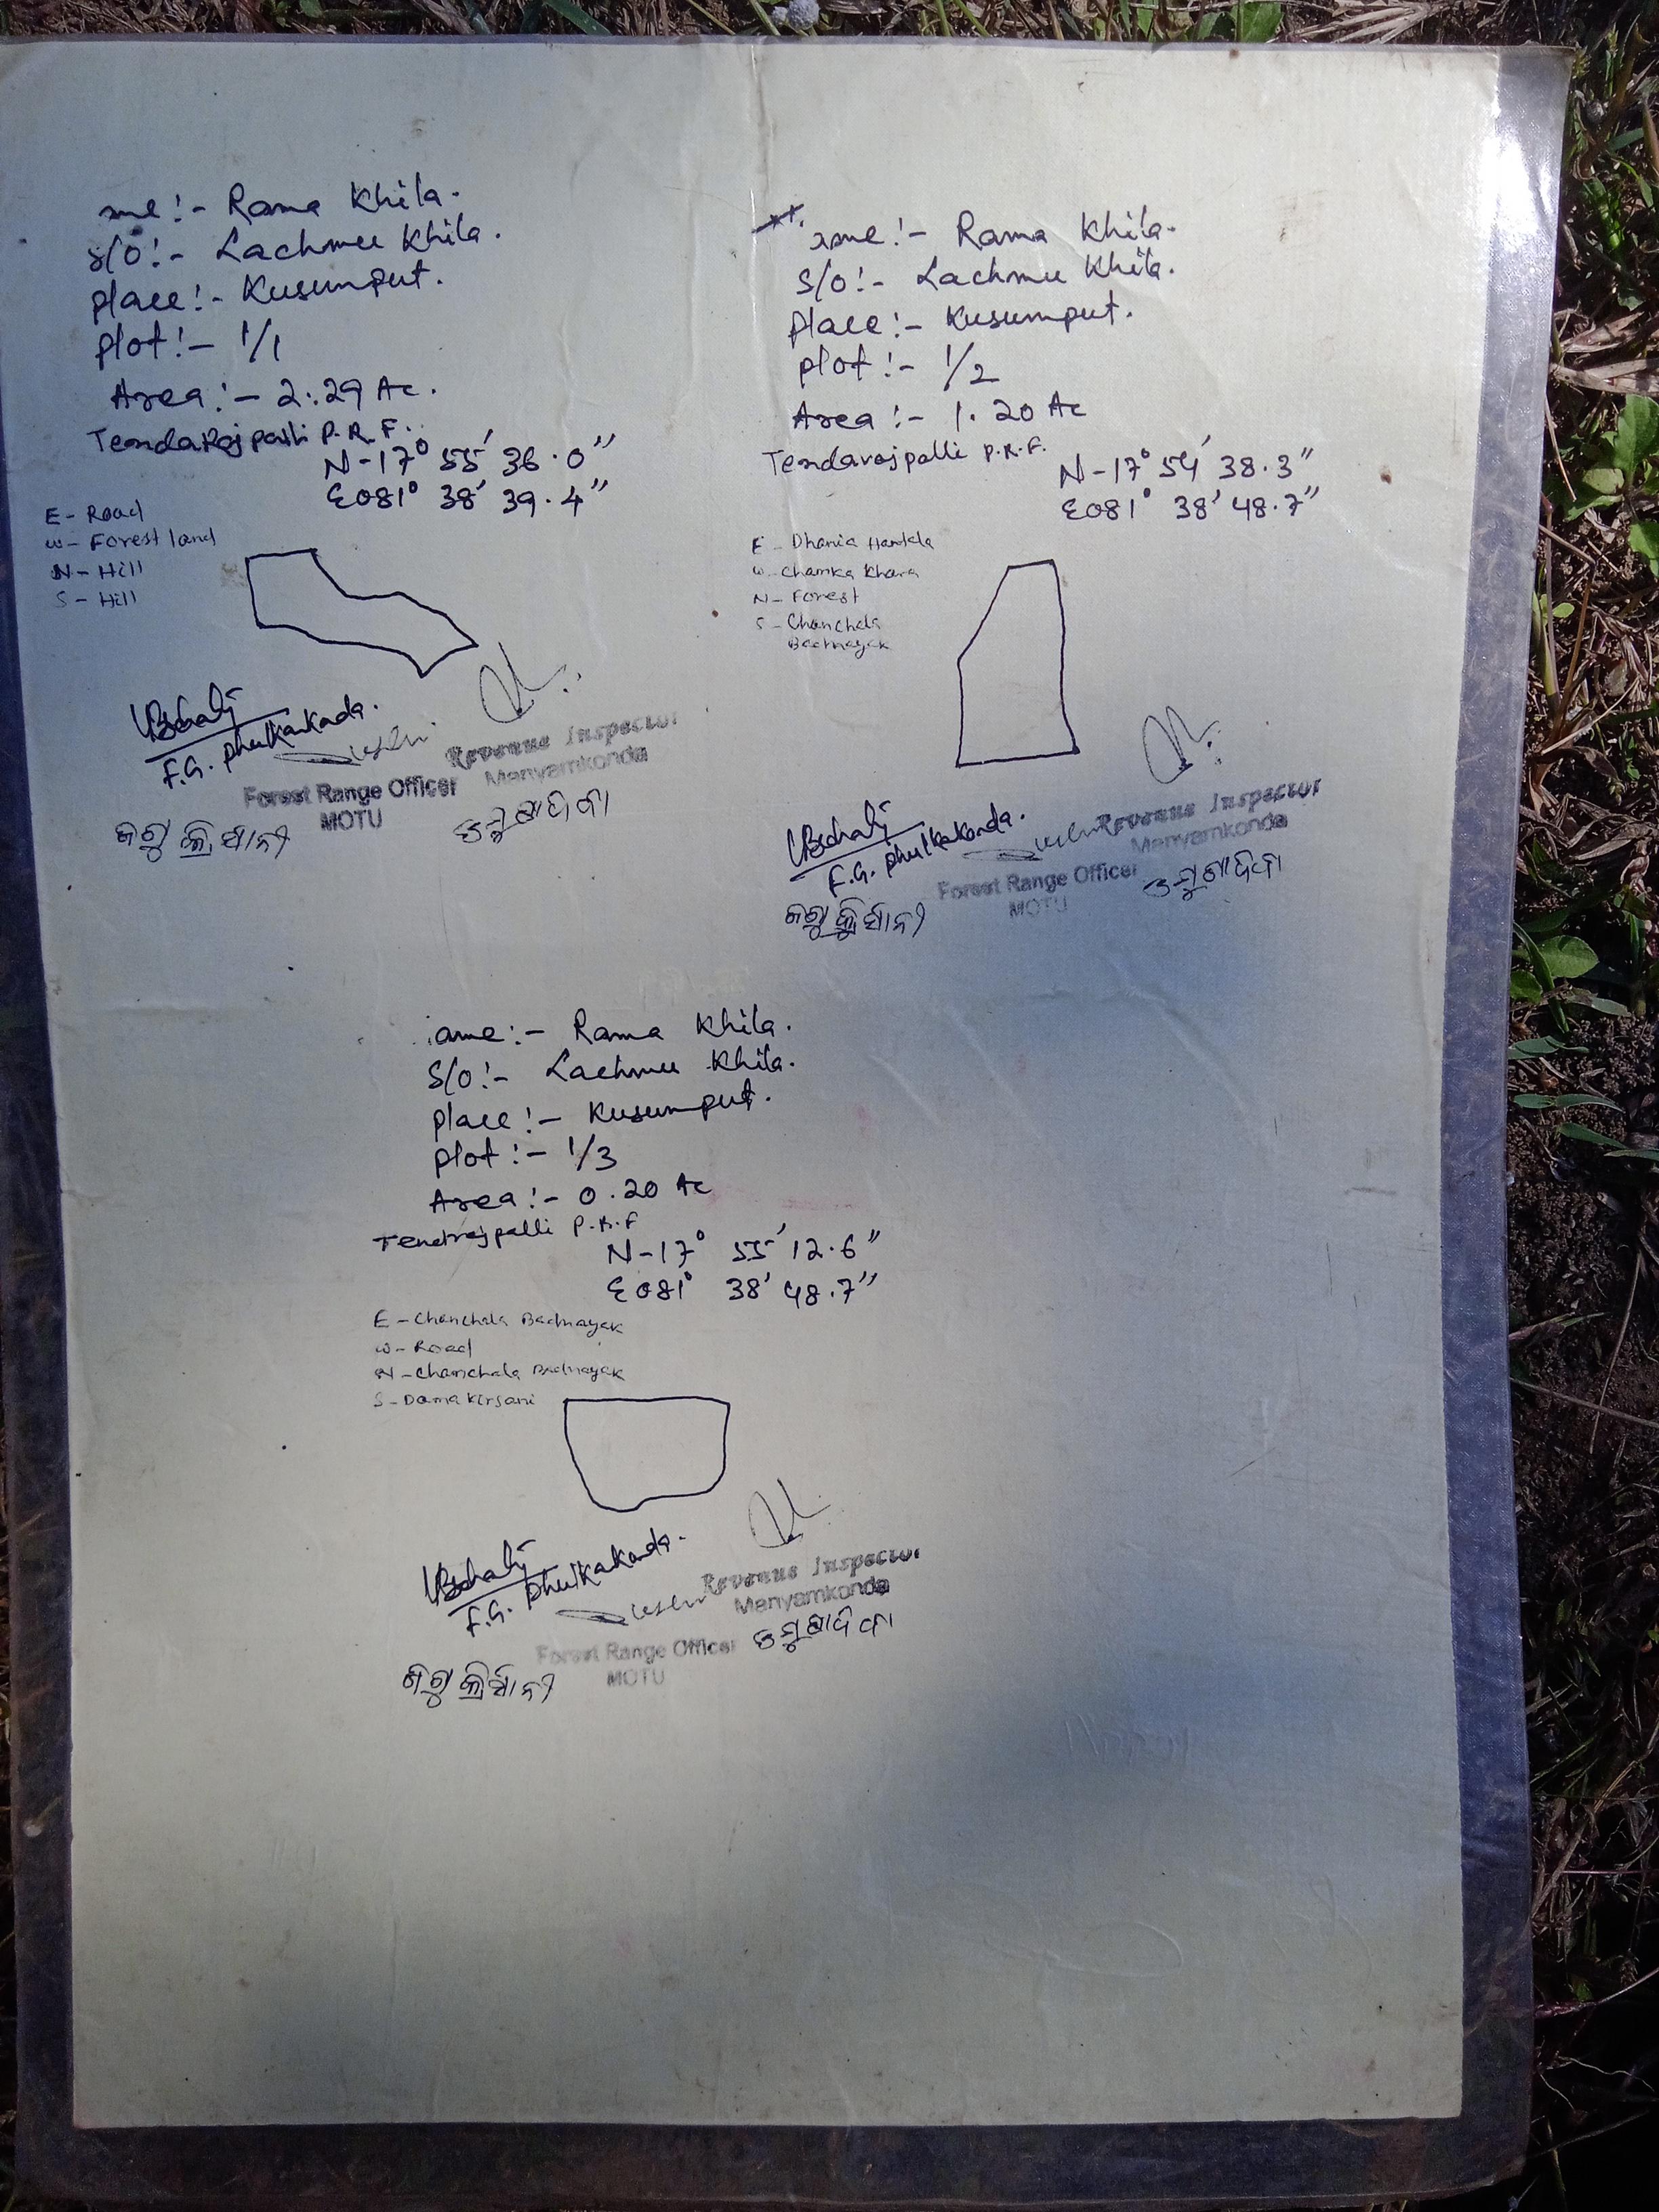 ame:- Rama Khila.
S/O:- Lachmu Khila.
place:- Kusumput.
plot:- 1/1
Area:- 2.29 Ac.
Tendarajpalli P.R.F.
N-17° 55' 36.0"
E081° 38' 39.4"
E- Road
W- Forest land
N- Hill
S- Hill
F.G. Phulkakonda.
Revenue Inspector
Manyamkonda
Forest Range Officer
MOTU
ame:- Rama Khila.
S/O:- Lachmu Khila.
place:- Kusumput.
plot:- 1/2
Area:- 1.20 Ac
Tendarajpalli P.R.F.
N-17° 54' 38.3"
E081° 38' 48.7"
E- Dhania Hantala
W- Chamka Khara
N- Forest
S- Chanchala
Badnayak
F.G. Phulkakonda.
Revenue Inspector
Manyamkonda
Forest Range Officer
MOTU
ame:- Rama Khila.
S/O:- Lachmu Khila.
place:- Kusumput.
plot:- 1/3
Area:- 0.20 Ac
Tendrajpalli P.R.F
N-17° 55' 12.6"
E081° 38' 48.7"
E- Chanchala Badnayak
W- Road
N- Chanchala Badnayak
S- Dama Kirsani
F.G. Phulkakonda.
Revenue Inspector
Manyamkonda
Forest Range Officer
MOTU